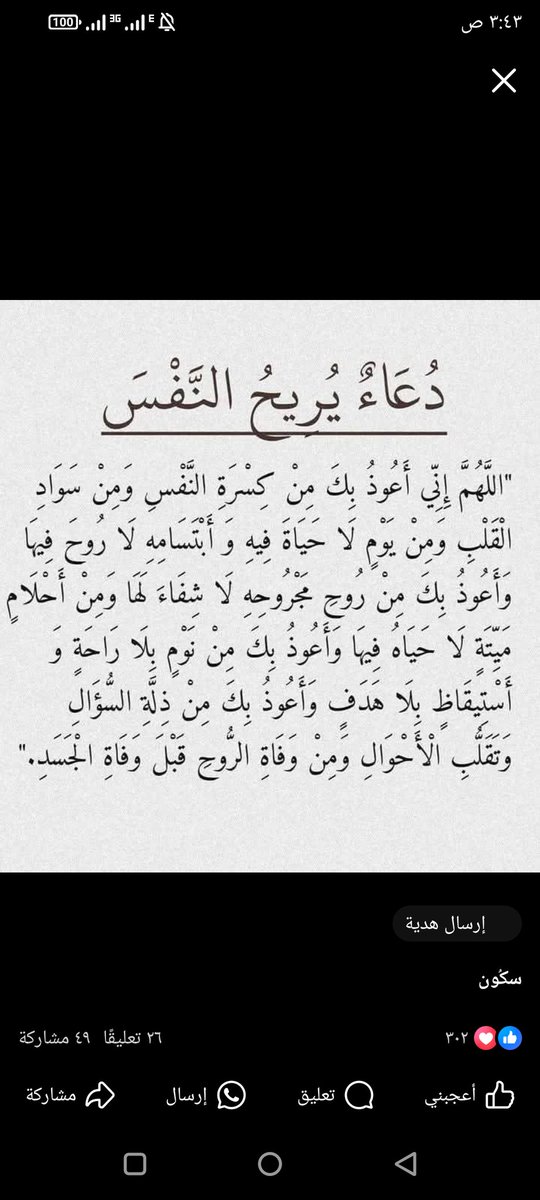 ٣:٤٣ ص
100 3G E
دُعَاءٌ يُرِيحُ النَّفْسَ
"اللَّهُمَّ إِنِّي أَعُوذُ بِكَ مِنْ كِسْرَةِ النَّفْسِ وَمِنْ سَوَادِ
الْقَلْبِ وَمِنْ يَوْمٍ لَا حَيَاةَ فِيهِ وَ أَبْتَسَامِهِ لَا رُوحَ فِيهَا
وَأَعُوذُ بِكَ مِنْ رُوحٍ مَجْرُوحهِ لَا شِفَاءَ لَهَا وَمِنْ أَحْلَامٍ
مَيِّتَةٍ لَا حَيَاهُ فِيهَا وَأَعُوذُ بِكَ مِنْ نَوْمٍ بِلَا رَاحَةٍ وَ
أَسْتِيقَاظٍ بِلَا هَدَفٍ وَأَعُوذُ بِكَ مِنْ ذِلَّةِ السُّؤَالِ
وَتَقَلُّبِ الْأَحْوَالِ وَمِنْ وَفَاةِ الرُّوحِ قَبْلَ وَفَاةِ الْجَسَدِ."
إرسال هدية
سكُون
٣٠٢ ٢٦ تعليقًا ٤٩ مشاركة
أعجبني تعليق إرسال مشاركة